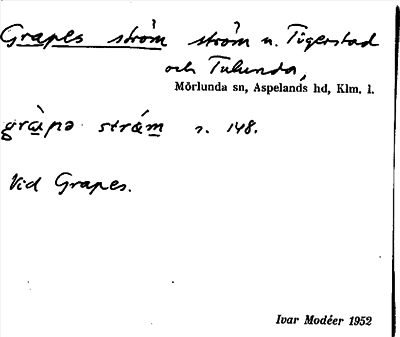 Grapes ström ström n. Tigerstad
och Tulunda,
Mörlunda sn, Aspelands hd, Klm. l.
gràpə strám s. 148.
Vid Grapes.
Ivar Modéer 1952